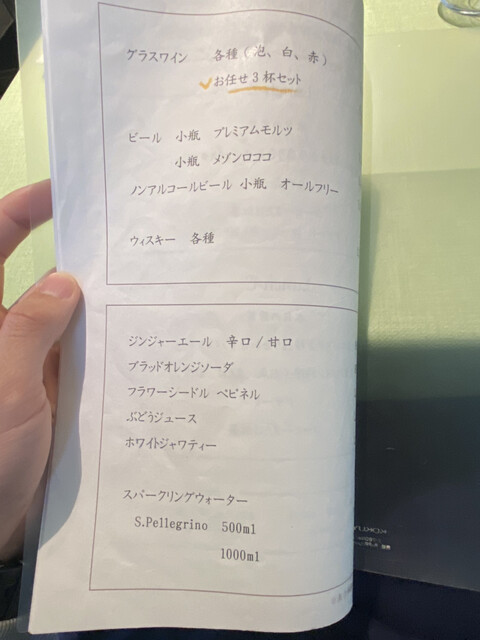 グラスワイン 各種(泡、白、赤)
✓お任せ3杯セット
ビール 小瓶 プレミアムモルツ
小瓶 メゾンロココ
ノンアルコールビール 小瓶 オールフリー
ウィスキー 各種
ジンジャーエール 辛口/甘口
ブラッドオレンジソーダ
フラワーシードル ペピネル
ぶどうジュース
ホワイトジャワティー
スパークリングウォーター
S.Pellegrino 500ml
1000ml